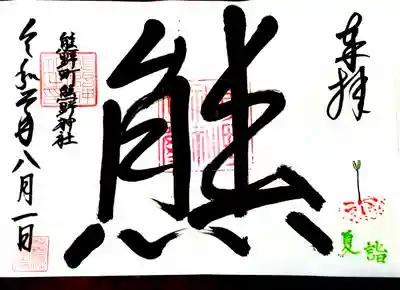 奉拝
夏詣
熊
熊野町熊野神社
令和元年八月一日